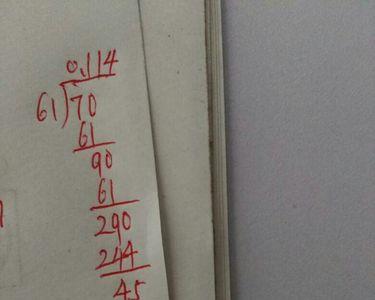 0.114
61)70
61
90
61
290
244
45